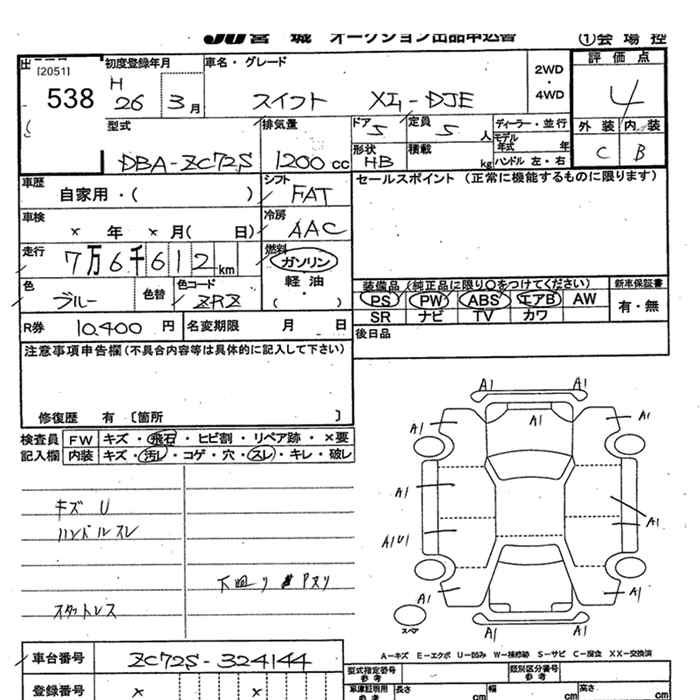 JU宮城 オークション出品申込書 ①会場控
出 [2051] 538
初度登録年月 H 26 3月
車名・グレード スイフト XG-DJE
2WD・4WD
評価点 4
外装 C 内装 B
型式 DBA-ZC72S
排気量 1200cc
ドア 5 定員 5人
形状 HB 積載 kg
ディーラー・並行
モデル年式 年
ハンドル 左・右
車歴 自家用・( )
シフト FAT
セールスポイント(正常に機能するものに限ります)
車検 × 年 × 月( 日)
冷房 AAC
走行 7万6千612km
燃料 ガソリン 軽油 ( ・ )
色 ブルー 色替 色コード ZRZ
装備品(純正品に限り○をつけてください) 新車保証書
PS PW ABS エアB AW 有・無
SR ナビ TV カワ
R券 10,400円 名変期限 月 日
後日品
注意事項申告欄(不具合内容等は具体的に記入して下さい)
修復歴 有 〔箇所 〕
検査員記入欄
FW キズ・飛石・ヒビ割・リペア跡・×要
内装 キズ・汚レ・コゲ・穴・スレ・キレ・破レ
キズ U
ハンドルスレ
下廻り Pヌリ
スタットレス
A1 A1
A1 A1 A1
A1
A1
A1U1
A1 A1
A1 A1
スペア
A-キズ E-エクボ U-凹み W-補修跡 S-サビ C-腐食 XX-交換済
車台番号 ZC72S-324144
型式指定番号 参考 類別区分番号 参考
登録番号 × ×
車庫証明用 参考 長さ cm 幅 cm 高さ cm